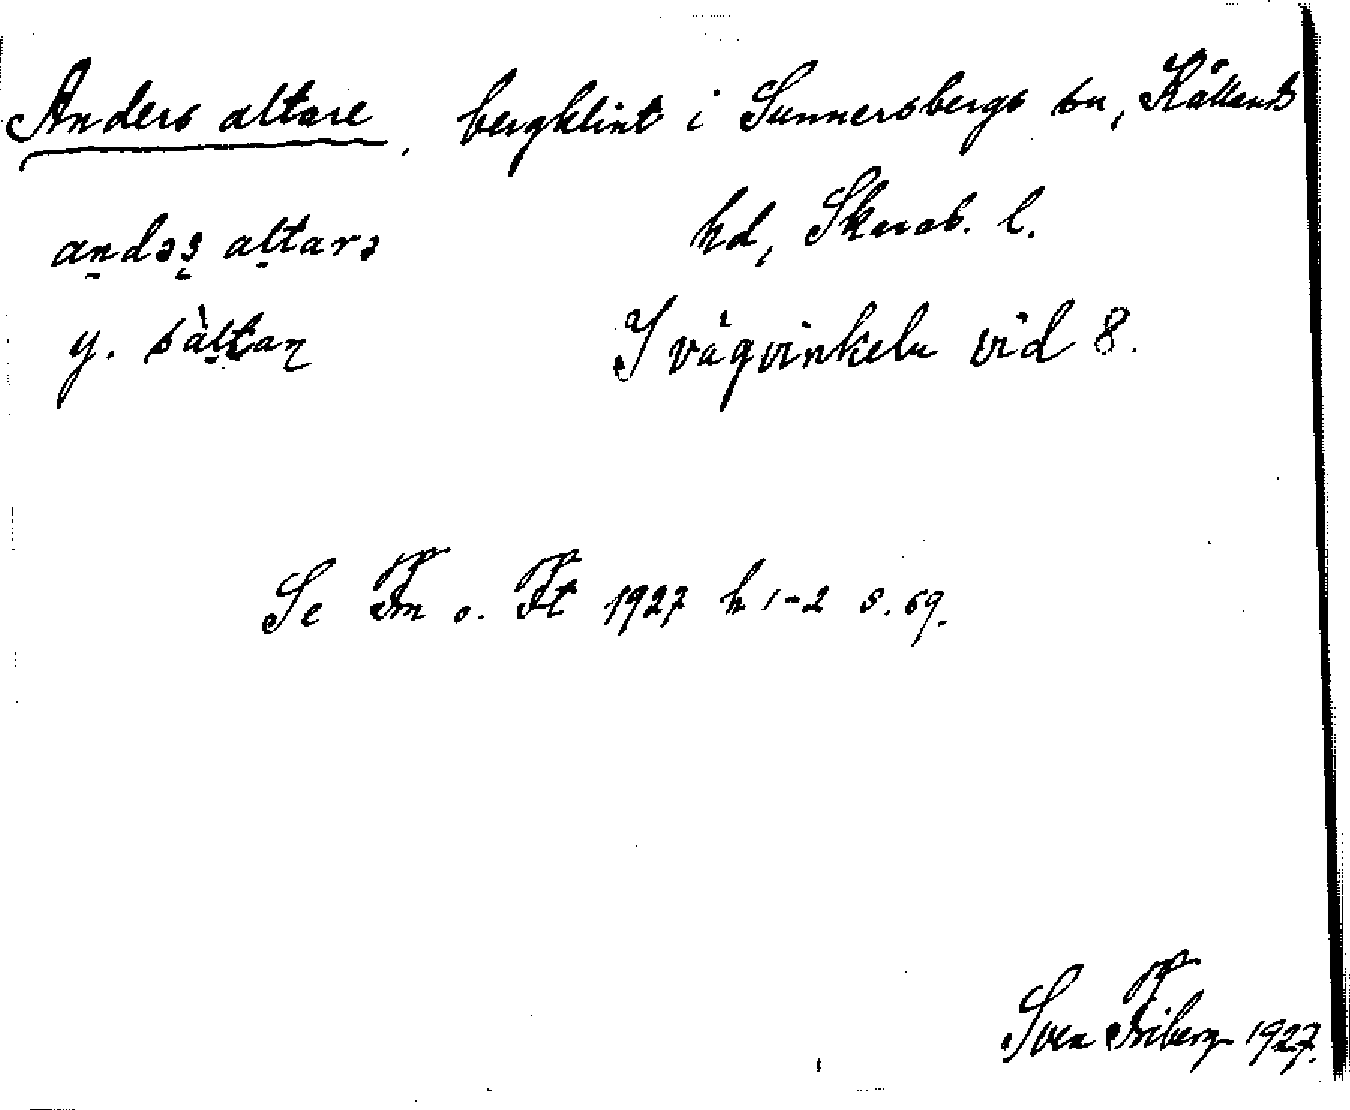 Anders altare, bergklint i Sunnersbergs sn, Kållands
andəs altarə hd, Skarab. l.
y. sàltaɳ I vägvinkeln vid 8.
Se Fm o. Ft 1927 h 1-2 s. 69.
Sven Friberg 1927.